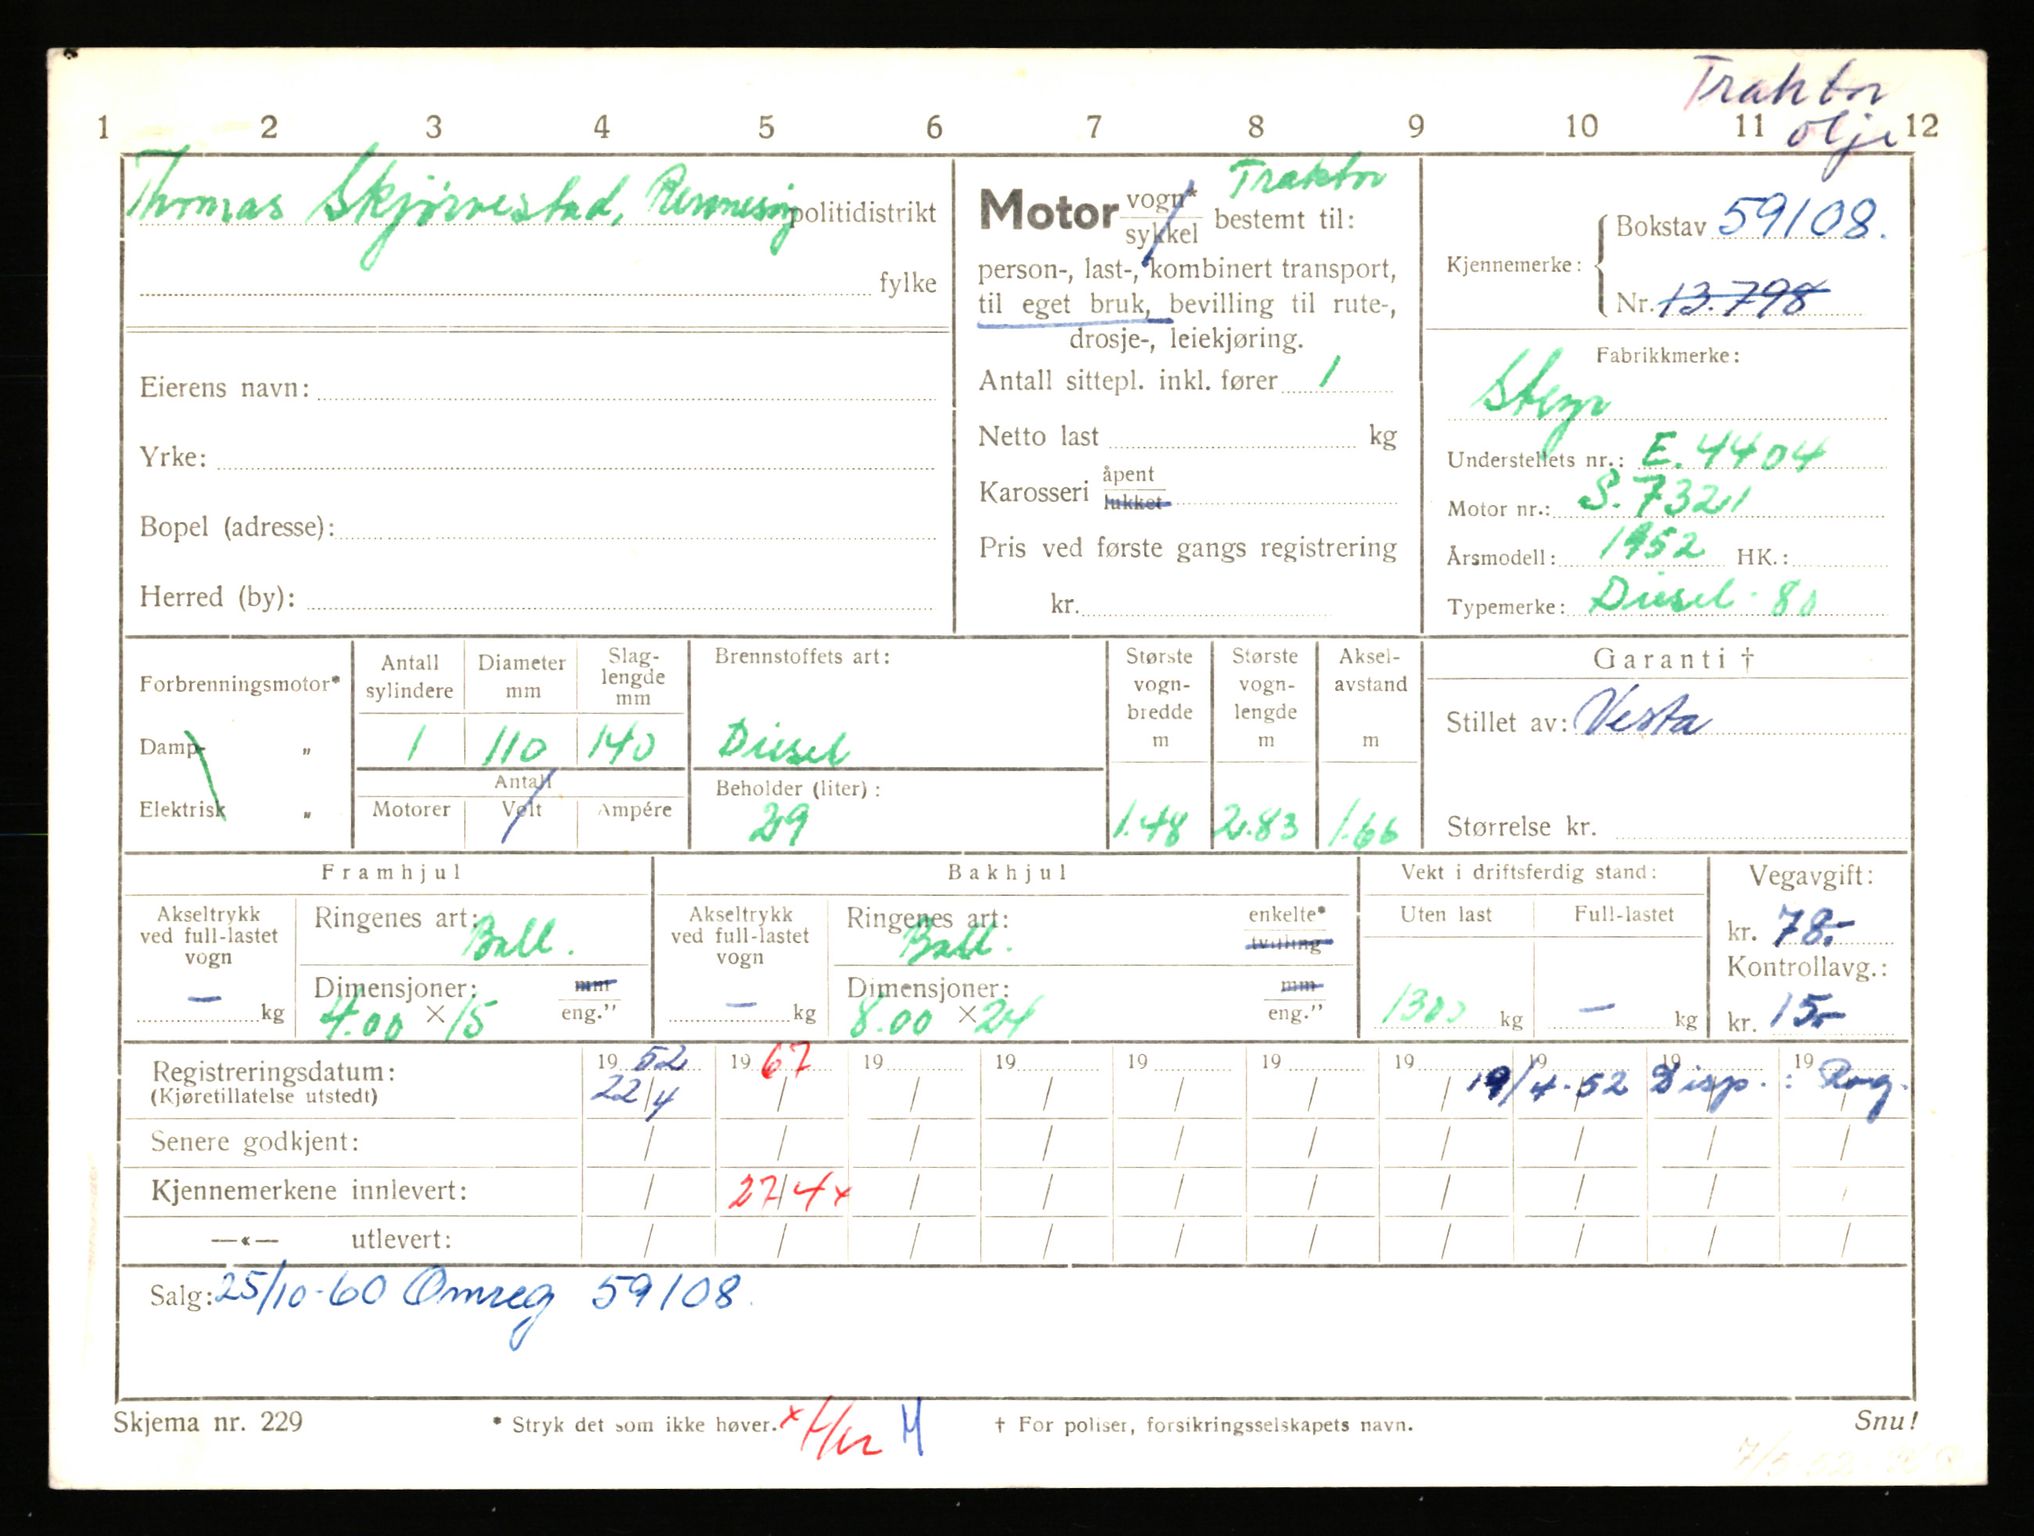 Traktor
olje
1 2 3 4 5 6 7 8 9 10 11 12
Thomas Skjørvestad, Rennesøy politidistrikt
fylke
Eierens navn:
Yrke:
Bopel (adresse):
Herred (by):
Traktor
Motor vogn* sykkel bestemt til:
person-, last-, kombinert transport,
til eget bruk, bevilling til rute-,
drosje-, leiekjøring.
Antall sittepl. inkl. fører 1
Netto last kg
Karosseri åpent lukket
Pris ved første gangs registrering
kr.
Kjennemerke: Bokstav 59108.
Nr. 13.798
Fabrikkmerke:
Steyr
Understellets nr.: E. 4404
Motor nr.: S. 7321
Årsmodell: 1952 HK.:
Typemerke: Diesel 80
Forbrenningsmotor*
Damp- "
Elektrisk "
Antall sylindere
Diameter mm
Slag-lengde mm
1 110 140
Antall
Motorer Volt Ampére
Brennstoffets art:
Diesel
Beholder (liter):
29
Største vogn-bredde m
Største vogn-lengde m
Aksel-avstand m
1.48 2.83 1.66
Garanti †
Stillet av: Vesta
Størrelse kr.
Framhjul
Akseltrykk ved full-lastet vogn
— kg
Ringenes art: Ball.
Dimensjoner: mm
4.00 × 15 eng."
Bakhjul
Akseltrykk ved full-lastet vogn
— kg
Ringenes art: Ball. enkelte* tvilling
Dimensjoner: mm
8.00 × 24 eng."
Vekt i driftsferdig stand:
Uten last Full-lastet
1300 kg — kg
Vegavgift:
kr. 78.-
Kontrollavg.:
kr. 15.-
Registreringsdatum: 19 52 19 67 19 19 19 19 19 19 19 19
(Kjøretillatelse utstedt) 22/4 / / / / / / 19/4-52 Disp. : Rog.
Senere godkjent: / / / / / / / / / /
Kjennemerkene innlevert: / 27/4 x / / / / / / / /
—«— utlevert: / / / / / / / / / /
Salg: 25/10-60 Omreg 59108.
Skjema nr. 229
* Stryk det som ikke høver.
† For poliser, forsikringsselskapets navn.
Snu!